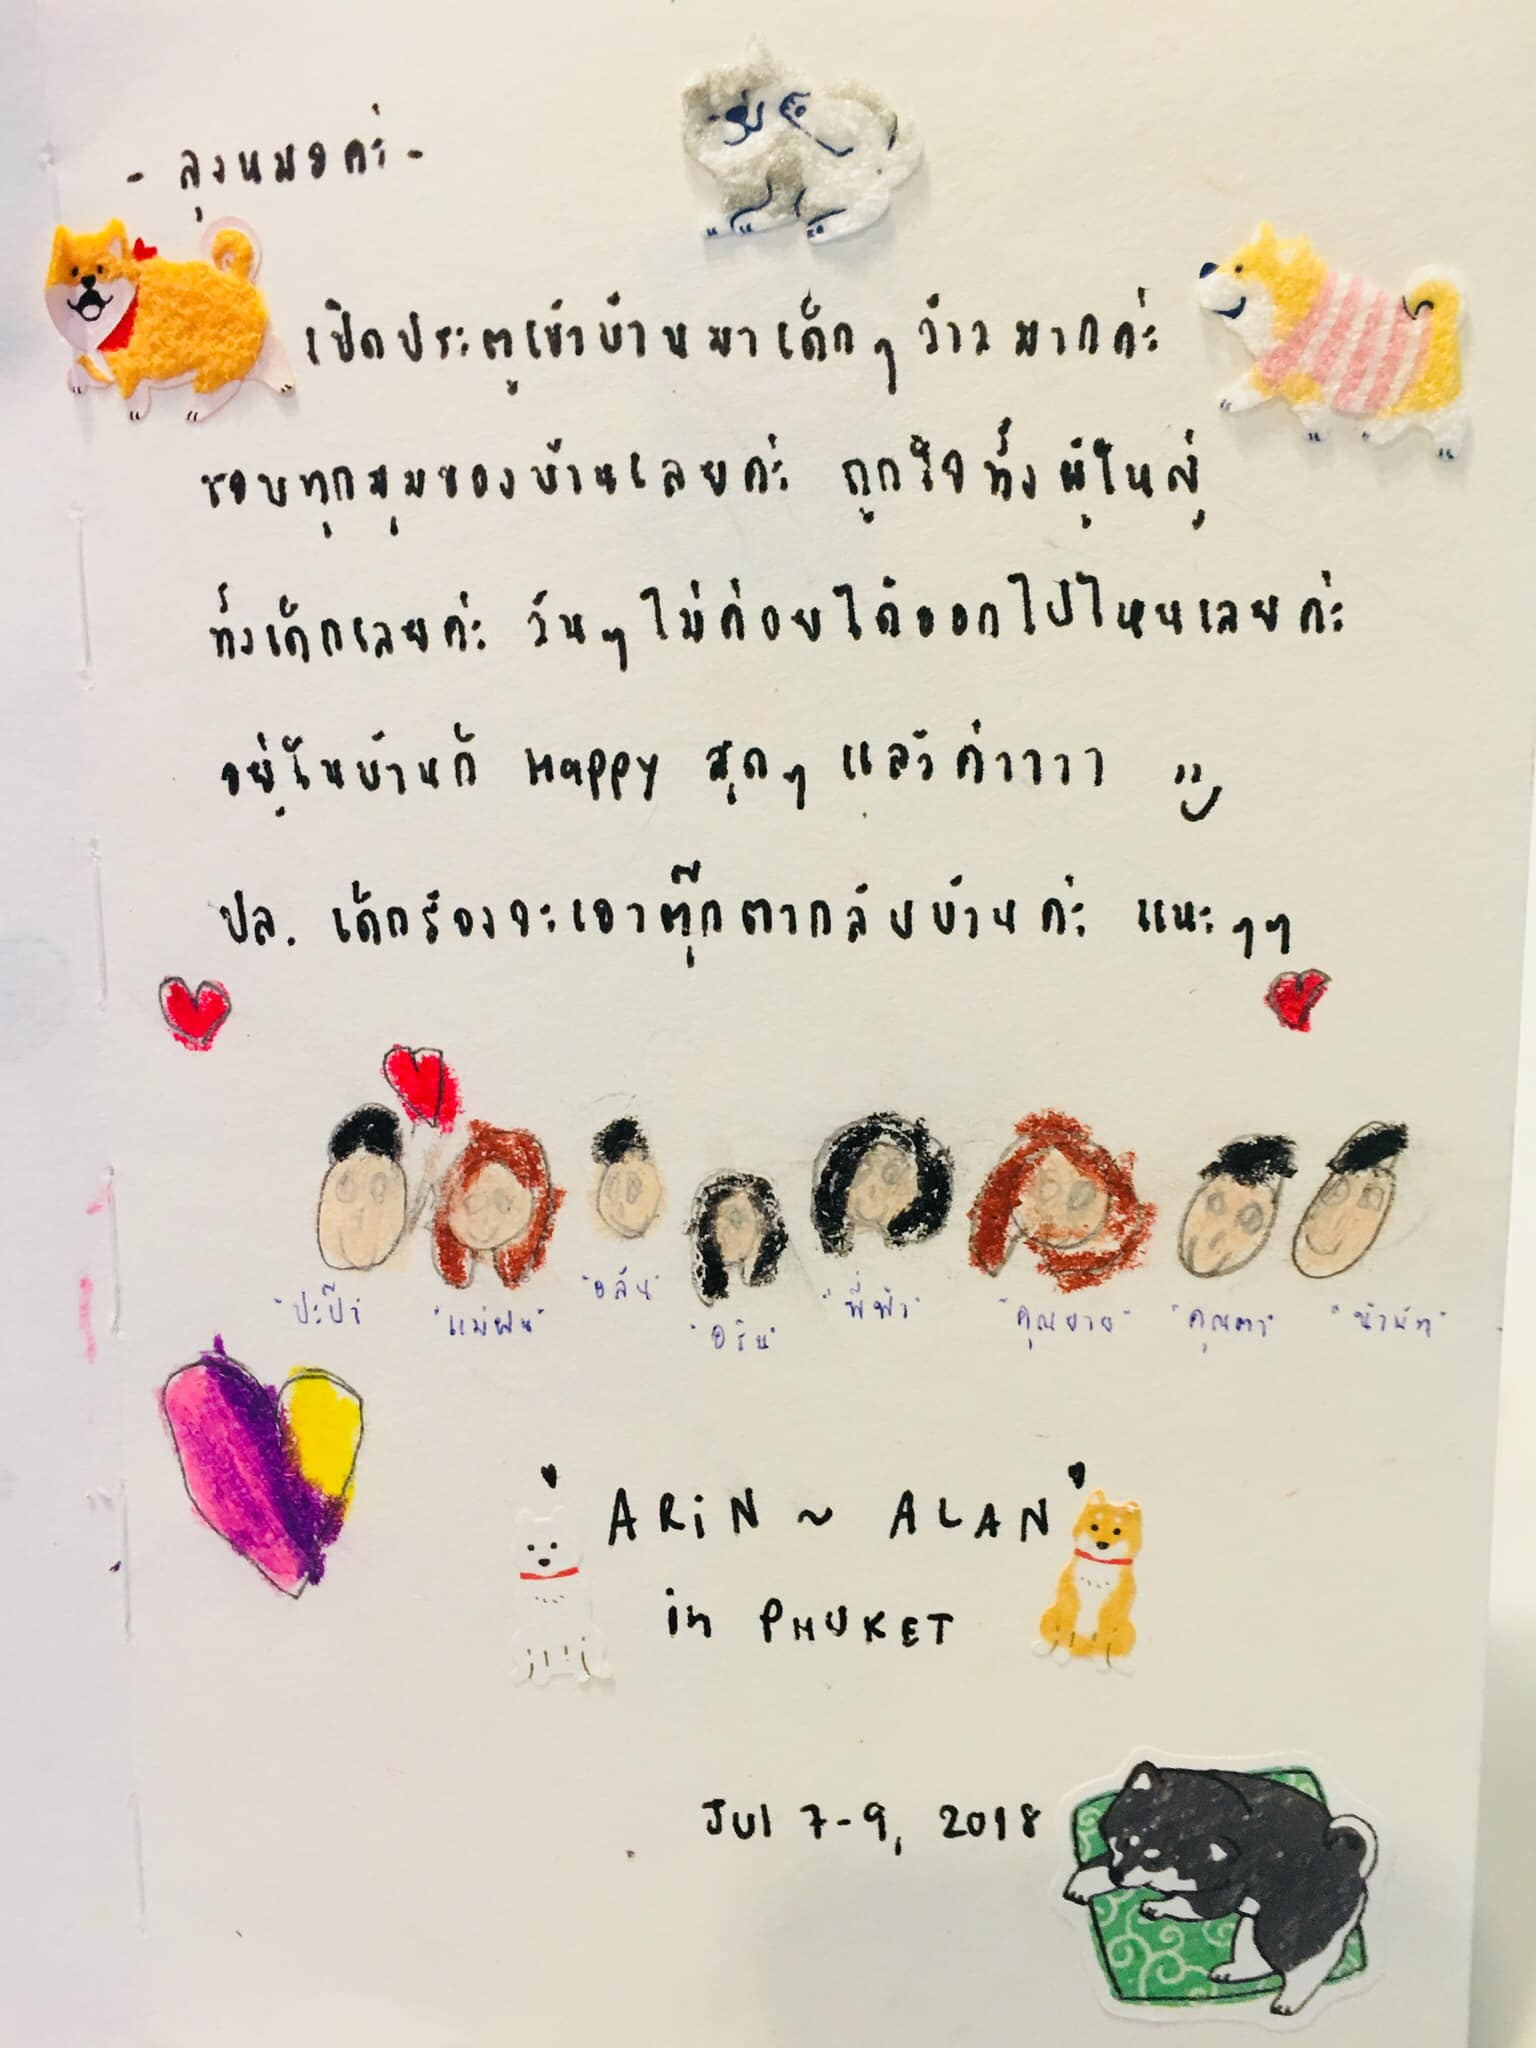 - ลุงหมอคะ -
เปิดประตูเข้าบ้านมาเด็กๆ ว้าวมากค่ะ
ชอบทุกมุมของบ้านเลยค่ะ ถูกใจทั้งผู้ใหญ่
ทั้งเด็กเลยค่ะ วันๆ ไม่ค่อยได้ออกไปไหนเลยค่ะ
อยู่ในบ้านก็ Happy สุดๆ แล้วค่าาาา
ปล. เด็กร้องจะเอาตุ๊กตากลับบ้านค่ะ แนะๆๆ
"ปะป๊า" "แม่ฝน" "อลัน" "อริน" "พี่ฟ้า" "คุณยาย" "คุณตา" "น้านัท"
ARiN ~ ALAN
in PHUKET
Jul 7-9, 2018